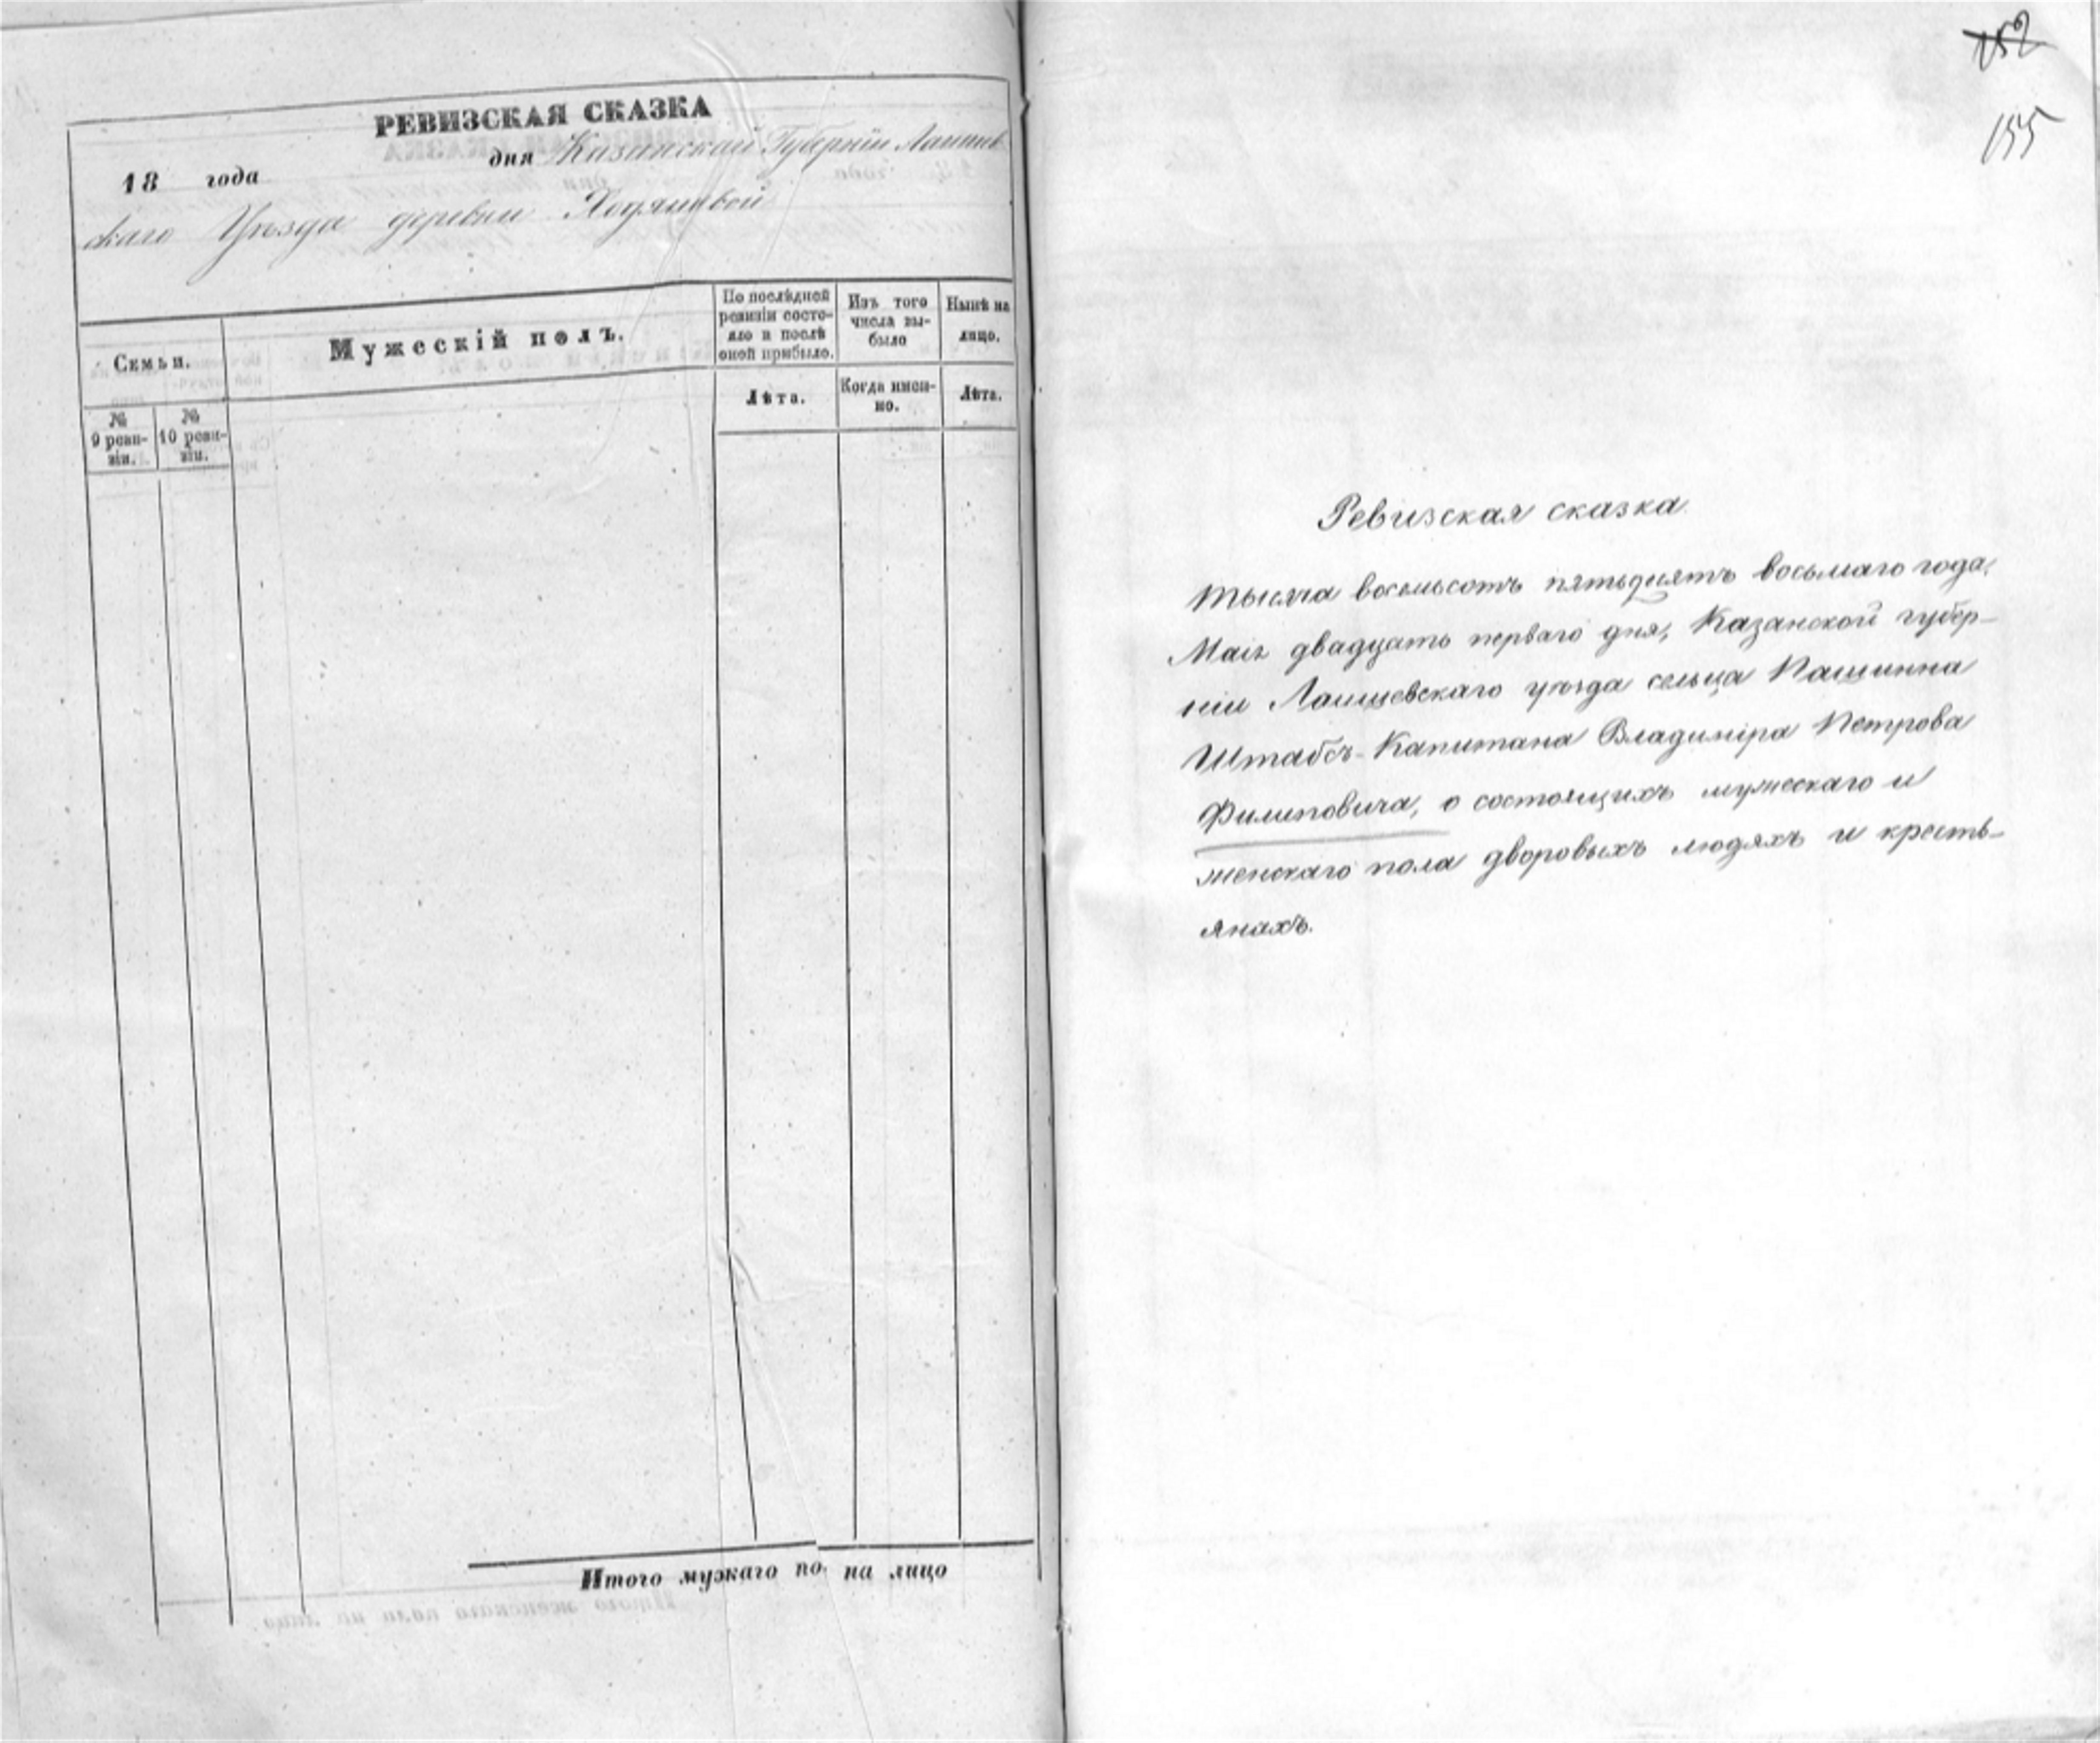 РЕВИЗСКАЯ СКАЗКА
18 года дня Казанской Губерніи Лаишев
скаго Уѣзда деревни Ходяшевой
Семьи.
Мужескій полъ.
По послѣдней ревизіи состо-
яло и послѣ
оной прибыло.
Изъ того
числа вы-
было
Нынѣ на
лицо.
№
9 реви-
зіи.
№
10 реви-
зіи.
Лѣта.
Когда имен-
но.
Лѣта.
Итого мужкаго по на лицо
152
155
Ревизская сказка
тысяча восемьсотъ пятьдеятъ восьмаго года,
Маія двадцать перваго дня, Казанской губер-
ніи Лаишевскаго уѣзда сельца Пашинна
Штабсъ-Капитана Владиміра Петрова
Филиповича, о состоящихъ мужескаго и
женскаго пола дворовыхъ людяхъ и кресть-
янахъ.